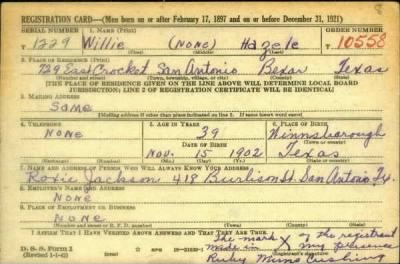 8
REGISTRATION CARD—(Men born on or after February 17, 1897 and on or before December 31, 1921)
SERIAL NUMBER 1. NAME (Print) ORDER NUMBER
T 1229 Willie (NONE) Hazele T 10558
(First) (Middle) (Last)
2. PLACE OF RESIDENCE (Print)
729 East Crocket San Antonio Bexar Texas
(Number and street) (Town, township, village, or city) (County) (State)
[THE PLACE OF RESIDENCE GIVEN ON THE LINE ABOVE WILL DETERMINE LOCAL BOARD
JURISDICTION; LINE 2 OF REGISTRATION CERTIFICATE WILL BE IDENTICAL]
3. MAILING ADDRESS
Same
[Mailing address if other than place indicated on line 2. If same insert word same]
4. TELEPHONE 5. AGE IN YEARS 6. PLACE OF BIRTH
None 39 Winnsborough
DATE OF BIRTH (Town or county)
Nov. 15 1902 Texas
(Exchange) (Number) (Mo.) (Day) (Yr.) (State or country)
7. NAME AND ADDRESS OF PERSON WHO WILL ALWAYS KNOW YOUR ADDRESS
Roxie Jackson 418 Burleson St. San Antonio Tx.
8. EMPLOYER'S NAME AND ADDRESS
NONE
9. PLACE OF EMPLOYMENT OR BUSINESS
NONE
(Number and street or R. F. D. number) (Town) (County) (State)
I AFFIRM THAT I HAVE VERIFIED ABOVE ANSWERS AND THAT THEY ARE TRUE.
The mark X of the registrant
made in my presence
D. S. S. Form 1
(Revised 1-1-42) (over)
Ruby Mims Cushing
(Registrant's signature)